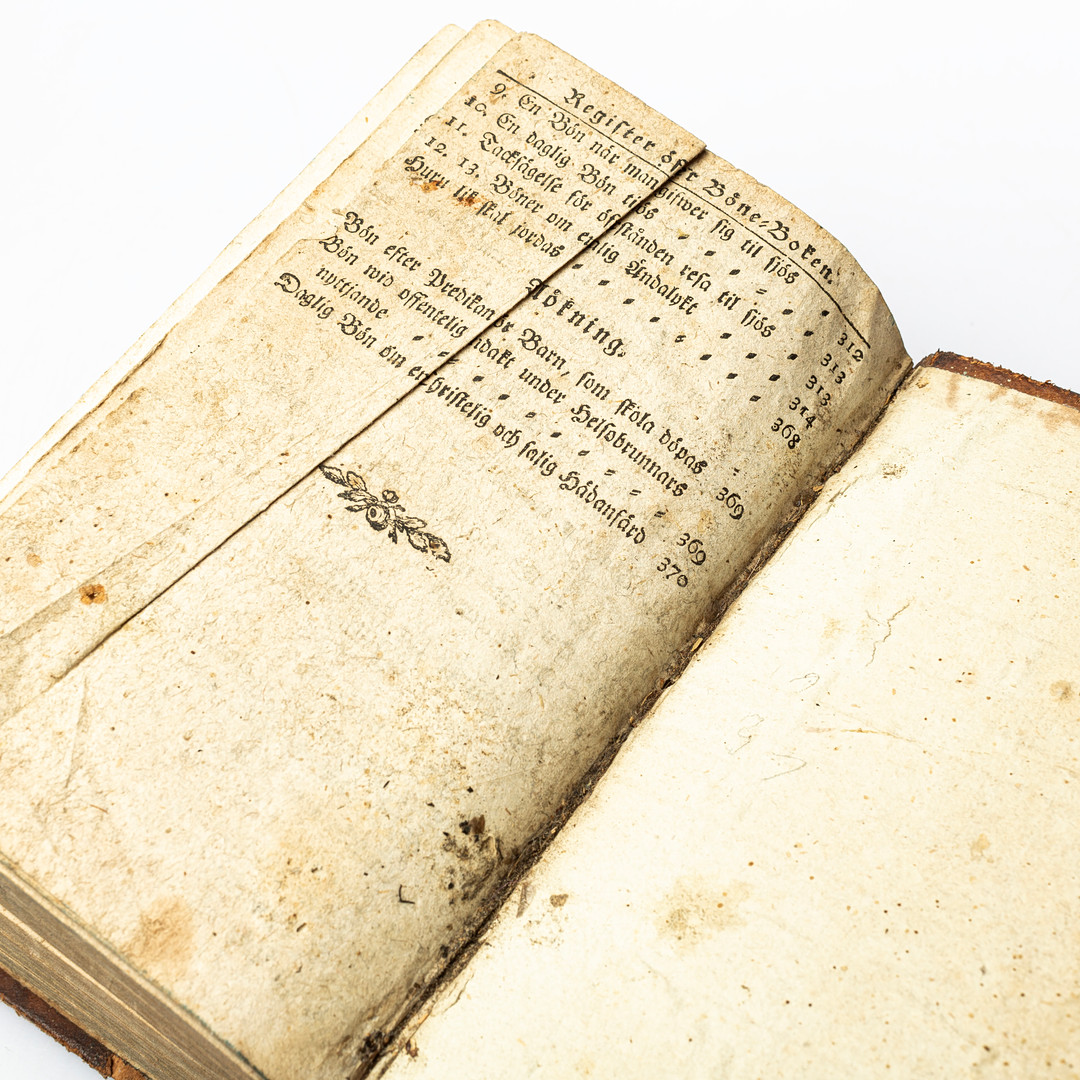 Register öfr Böne-Boken.
9. En Bön när man gifwer sig til sjös - - 312
10. En daglig Bön til sjös - - - - 313
11. Tacksägelse för öfstånden resa til sjös - - 313
12. 13. Böner om enlig Andakt - - - 314
Huru lik skal jordas - - - - - 368
ökning.
Bön efter Predikan ör Barn, som skola döpas - 369
Bön wid offentelig ndakt under Helsobrunnars
nyttjande - - - - - - - - 369
Daglig Bön om en hristelig och salig Hädanfärd 370